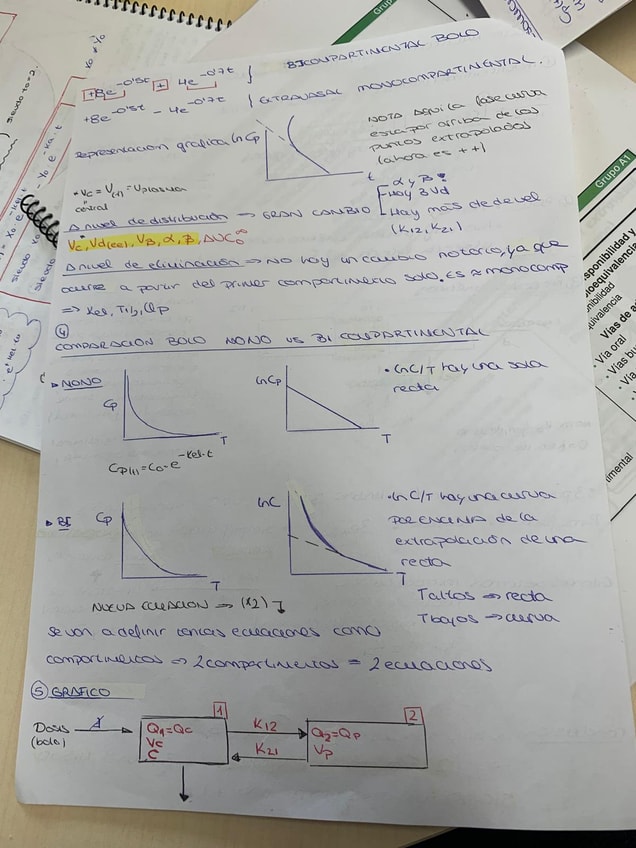 +8e^-0'5t + 4e^-0'7t / BICOMPARTIMENTAL BOLO
+8e^-0'5t - 4e^-0'7t / EXTRAVASAL MONOCOMPARTIMENTAL.
Representación gráfica
lnCp
t
NOTA
la fase curva
esta por arriba de los
puntos extrapolados
(ahora es ++)
• Vc = V(1) = Vplasma
central
A nivel de distribución → GRAN CAMBIO
α y B
Hay 3 Vd
Hay más de de vel
(K12, K21)
Vc, Vd(ee), VB, α, B, AUC0∞
A nivel de eliminación → NO hay un cambio notorio, ya que
ocurre a partir del primer compartimento solo. es ≈ monocomp
⇒ Kel, T1/2, Clp
④
COMPARACIÓN BOLO MONO VS BI COMPARTIMENTAL
▸ MONO
Cp
T
Cp(t)=Co·e^-Kel·t
lnCp
T
• lnC/T hay una sola
recta
▸ BI
Cp
T
lnC
T
• lnC/T hay una curva
POR ENCIMA de la
extrapolación de una
recta
T altos ⇒ recta
T bajos ⇒ curva
NUEVA ECUACION ⇒ (x2)
se van a definir tantas ecuaciones como
compartimentos ⇒ 2 compartimentos = 2 ecuaciones
⑤ GRAFICO
Dosis
(bolo)
1
Q1=Qc
Vc
C
K12
K21
2
Q2=Qp
Vp
Grupo A1
Vías de a
• Vía oral
• Vías bu
timental